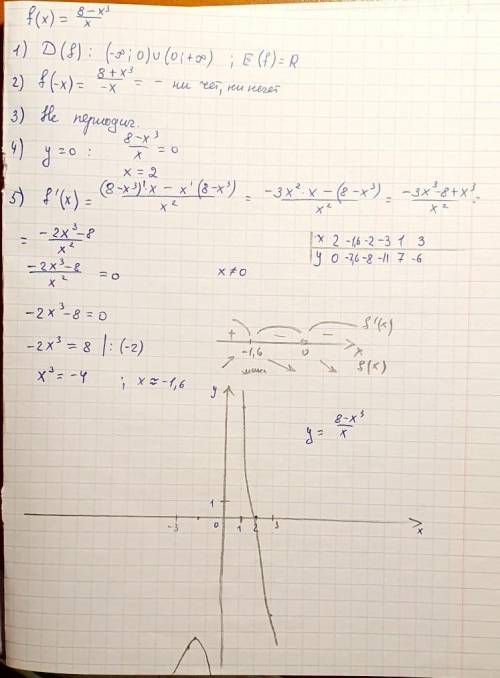 f(x) = (8-x³)/x
1) D(f): (-∞; 0)∪(0; +∞) ; E(f)=R
2) f(-x) = (8+x³)/(-x) = - ни чет, ни нечет
3) Не периодич.
4) y=0 : (8-x³)/x = 0
x = 2
5) f'(x) = ((8-x³)'x - x'(8-x³))/x² = (-3x²·x - (8-x³))/x² = (-3x³-8+x³)/x² =
= (-2x³-8)/x²
x 2 -1,6 -2 -3 1 3
y 0 -7,6 -8 -11 7 -6
(-2x³-8)/x² = 0 x≠0
-2x³-8=0
+ - - f'(x)
-2x³ = 8 |: (-2)
-1,6 0 x
x³ = -4 ; x ≈ -1,6
макс f(x)
y
y = (8-x³)/x
1
-3 0 1 2 3 x